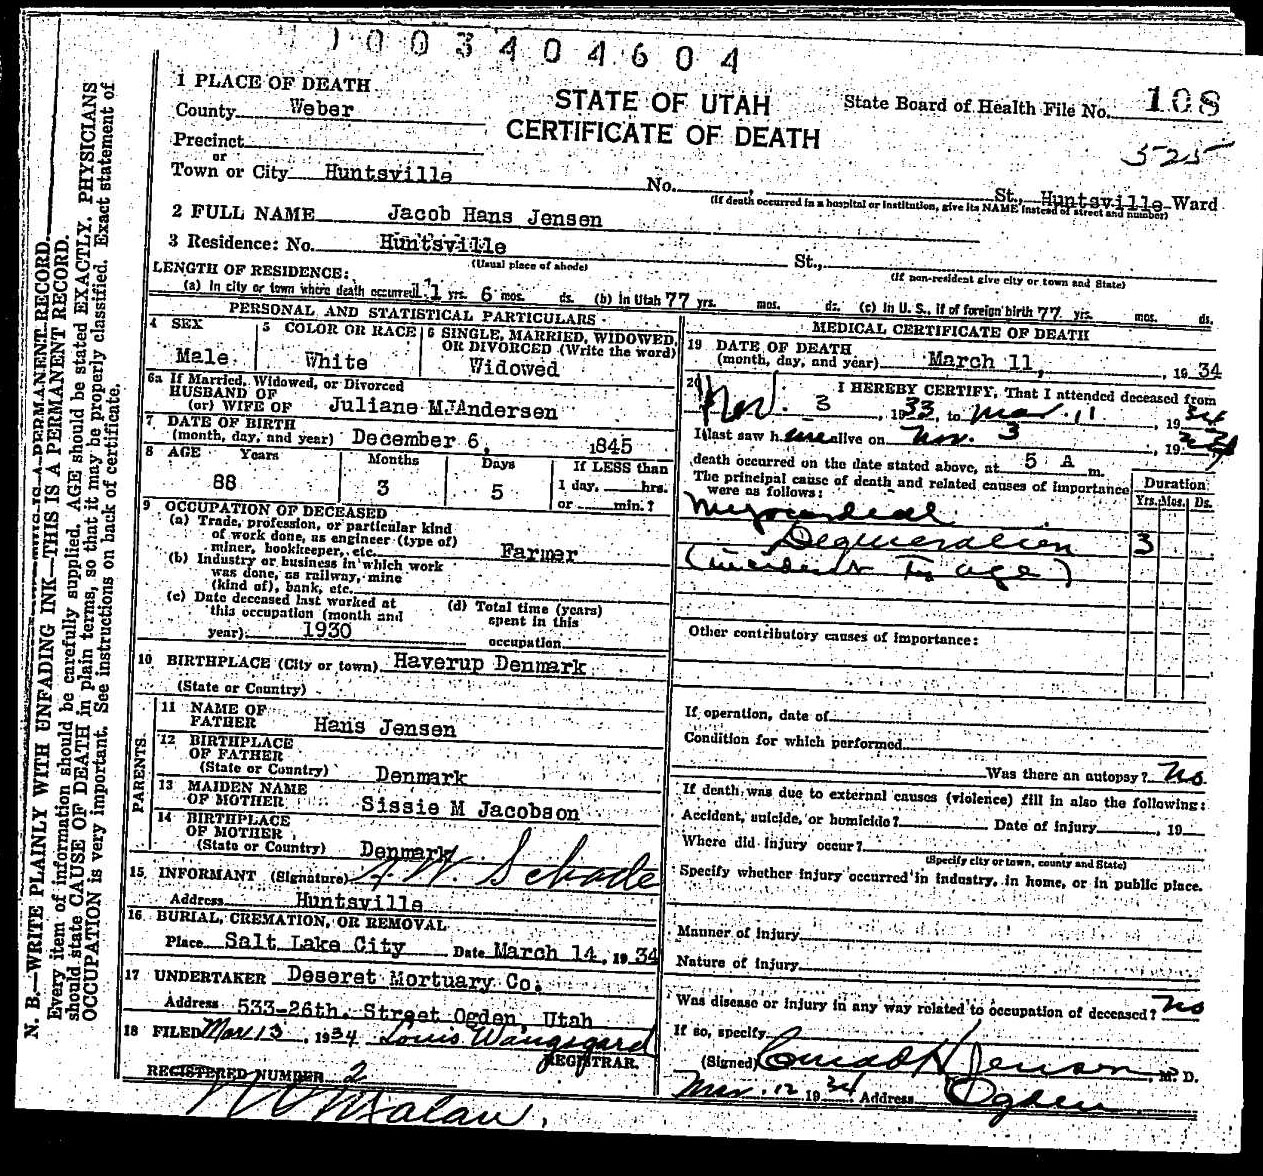 1003404604
1 PLACE OF DEATH
County Weber
STATE OF UTAH
CERTIFICATE OF DEATH
State Board of Health File No. 108
525
Precinct
or
Town or City Huntsville No. , St., Huntsville Ward
(If death occurred in a hospital or institution, give its NAME instead of street and number)
2 FULL NAME Jacob Hans Jensen
3 Residence: No. Huntsville St.,
(Usual place of abode) (If non-resident give city or town and State)
LENGTH OF RESIDENCE:
(a) In city or town where death occurred 1 yrs. 6 mos. ds. (b) in Utah 77 yrs. mos. ds. (c) In U. S., if of foreign birth 77 yrs. mos. ds.
PERSONAL AND STATISTICAL PARTICULARS
4 SEX
Male
5 COLOR OR RACE
White
6 SINGLE, MARRIED, WIDOWED,
OR DIVORCED (Write the word)
Widowed
6a If Married, Widowed, or Divorced
HUSBAND OF
(or) WIFE OF Juliane M. Andersen
7 DATE OF BIRTH
(month, day, and year) December 6, 1845
8 AGE Years Months Days If LESS than
1 day, hrs.
or min.?
88 3 5
9 OCCUPATION OF DECEASED
(a) Trade, profession, or particular kind
of work done, as engineer (type of)
miner, bookkeeper, etc. Farmer
(b) Industry or business in which work
was done, as railway, mine
(kind of), bank, etc.
(c) Date deceased last worked at
this occupation (month and
year) 1930
(d) Total time (years)
spent in this
occupation
10 BIRTHPLACE (City or town) Haverup Denmark
(State or Country)
PARENTS
11 NAME OF
FATHER Hans Jensen
12 BIRTHPLACE
OF FATHER
(State or Country) Denmark
13 MAIDEN NAME
OF MOTHER Sissie M Jacobson
14 BIRTHPLACE
OF MOTHER
(State or Country) Denmark
15 INFORMANT (Signature) A. W. Schade
Address Huntsville
16 BURIAL, CREMATION, OR REMOVAL
Place Salt Lake City Date March 14, 1934
17 UNDERTAKER Deseret Mortuary Co.
Address 533-26th. Street Ogden, Utah
18 FILED Mar 13, 1934 Louis Wangsgard
REGISTRAR.
REGISTERED NUMBER 2
MEDICAL CERTIFICATE OF DEATH
19 DATE OF DEATH
(month, day, and year) March 11, 1934
20 I HEREBY CERTIFY, That I attended deceased from
Nov. 3, 1933, to Mar. 11, 1934
I last saw him alive on Nov. 3, 19
death occurred on the date stated above, at 5 A m.
The principal cause of death and related causes of importance
were as follows:
Duration
Yrs. Mos. Ds.
Myocardial
Degeneration 3
(incident to age)
Other contributory causes of importance:
If operation, date of
Condition for which performed
Was there an autopsy? No
If death was due to external causes (violence) fill in also the following:
Accident, suicide, or homicide? Date of injury , 19
Where did injury occur?
(Specify city or town, county and State)
Specify whether injury occurred in industry, in home, or in public place.
Manner of injury
Nature of injury
Was disease or injury in any way related to occupation of deceased? No
If so, specify
(Signed) Conrad H Jenson, M. D.
Mar. 12 1934 Address Ogden
N. B.—WRITE PLAINLY WITH UNFADING INK—THIS IS A PERMANENT RECORD.
Every item of information should be carefully supplied. AGE should be stated EXACTLY. PHYSICIANS
should state CAUSE OF DEATH in plain terms, so that it may be properly classified. Exact statement of
OCCUPATION is very important. See instructions on back of certificate.